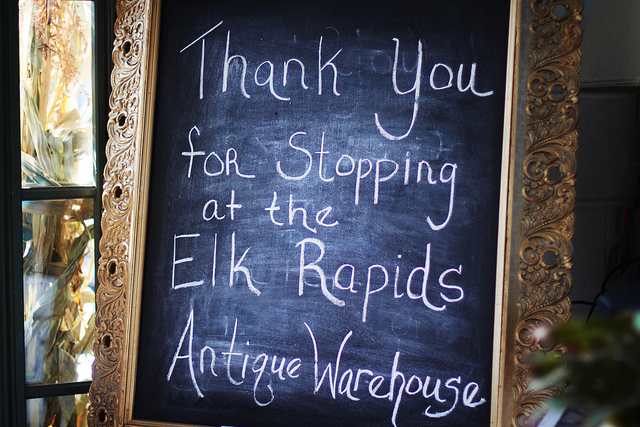 Thank You
for Stopping
at the
Elk Rapids
Antique Warehouse